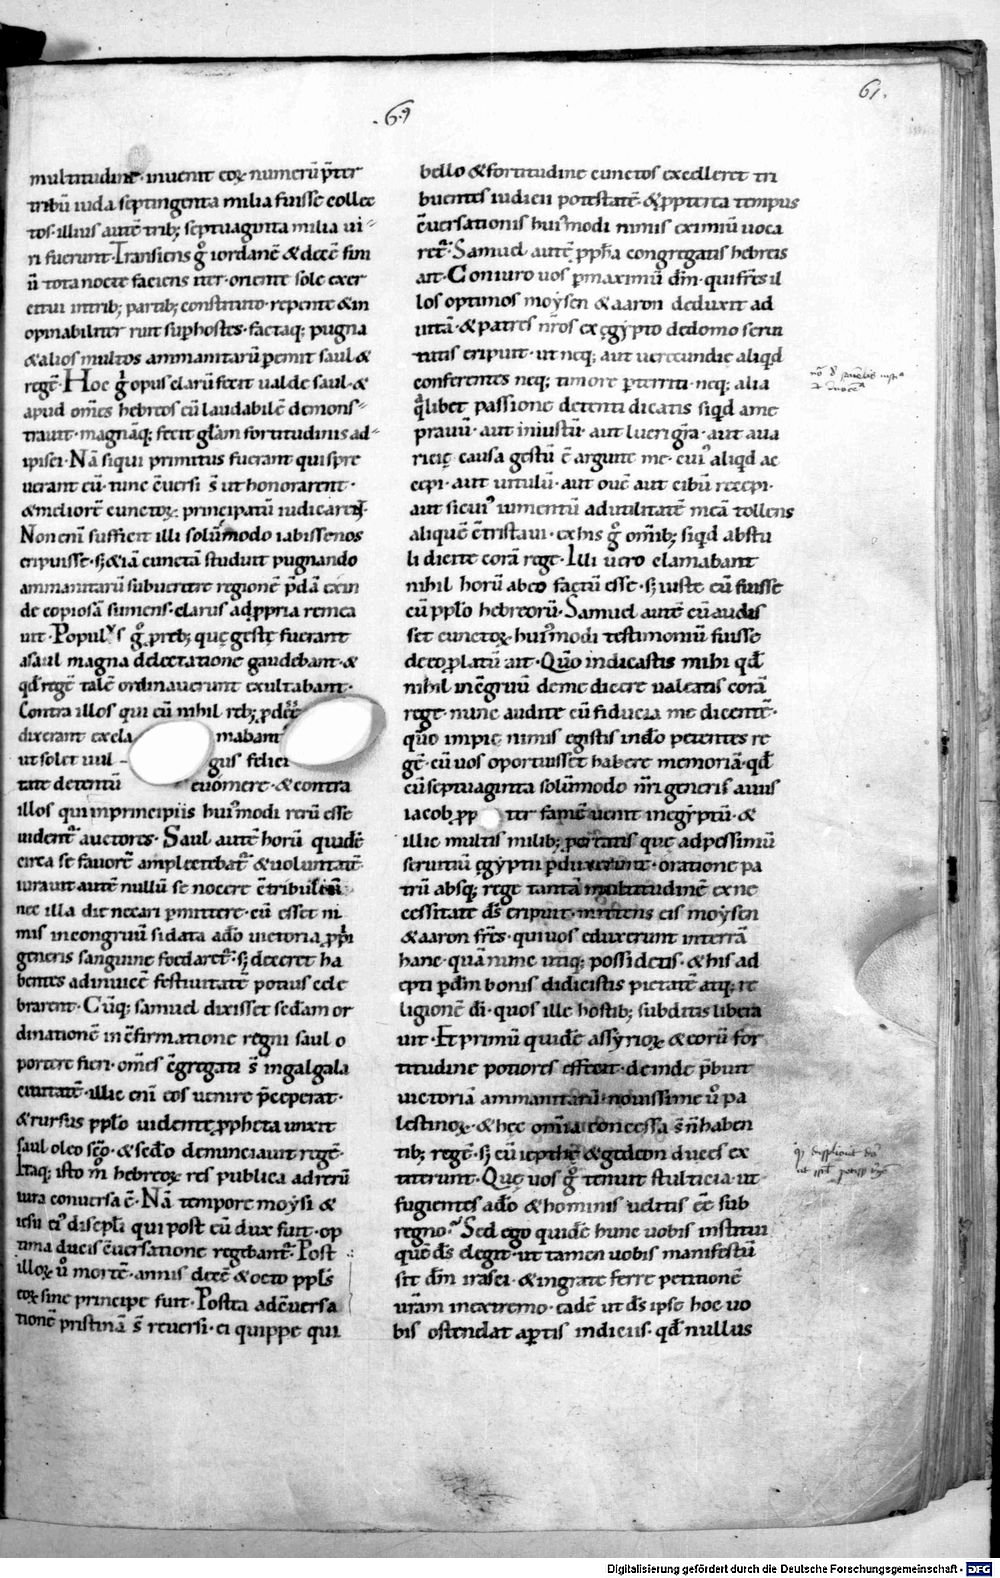 .69
61.
multitudine· inuenit eoꝝ numerū p̄ter
tribū iuda septingenta milia fuisse collec
tos· illius autē trib; septuaginta milia ui
ri fuerunt· Transiens g° iordanē & decē sini
ū tota nocte faciens iter· oriente sole exer
citui intrib; partib; constituto· repente & in
opinabiliter ruit sup hostes· factaq; pugna
& alios multos ammanitarū pemit saul &
regē· Hoc g̊ opus clarū fecit ualde saul· &
apud om̄s hebreos cū laudabilē demons
trauit· magnāq; fecit gl̄am fortitudinis ad
ipisci· Nā siqui primitus fuerant qui spre
uerant eū· tunc c̄uersi s̄ ut honorarent·
& meliorē cunctoꝝ· principatū iudicarent·
Non enī suffecit illi solūmodo iabissenos
eripuisse· s; & iā cunctā studuit pugnando
ammanitarū subuertere regionē p̄dā exin
de copiosā sumens· clarus ad ppria remea
uit· Popul's g° p reb; quę gestę fuerant
a saul magna delectatione gaudebant· &
qđ regē talē ordinauerunt exultabant·
Contra illos qui eū nihil reb; p dee
dixerant excla mabant
ut solet uul gus felici
tate detentū euomere· & contra
illos qui inprincipiis hui'modi rerū esse
uidentᷓ auctores· Saul autē horū quidē
circa se fauorē amplectebatᷓ & uoluntatē·
iurauit autē nullū se nocere c̄tribuliū·
nec illa die necari pmittere· cū esset ni
mis incongruū si data a do uictoria ppi
generis sanguine foedaretᷓ· s; deceret ha
bentes adinuicē festiuitatē potius cele
brarent· Cūq; samuel dixisset sedam or
dinationē in c̄firmatione regni saul o
portere fieri· om̄s c̄gregati s̄ in galgala
ciuitatē· illic eni eos uenire p̄ceperat·
& rursus pplo uidente ppheta unxit
saul oleo sc̄o· & sedo denunciauit regē·
Itaq; isto m° hebreoꝝ res publica ad regū
iura conuersa ē· Nā tempore moysi &
iesu ei' discipli qui post eū dux fuit· op
tima ducis c̄uersatione regebantᷓ· Post
illoꝝ ů mortē· annis decē & octo ppls
eoꝝ sine principe fuit· Postea ad c̄uersa
tionē pristinā s̄ reuersi· ei quippe qui
bello & fortitudine cunctos excelleret tri
buentes iudicii potestatē· & ppterea tempus
c̄uersationis hui'modi nimis eximiū uoca
retᷓ· Samuel autē ppha congregatis hebreis
ait· Coniuro uos p maximū dm̄· qui frēs il
los optimos moysen & aaron deduxit ad
uitā· & patres nr̄os ex ęgypto de domo serui
tutis eripuit· ut neq; aut uerecundie aliqd
conferentes neq; timore pterriti· neq; alia
qlibet passione detenti dicatis siqd a me
prauū· aut iniustū· aut lucri gr̄a· aut aua
ricię causa gestū ē arguite me· cui' aliqd ac
cepi· aut uitulū· aut ouē aut cibū recepi·
aut sicui' iumentū ad utilitatē meā tollens
aliquē c̄tristaui· ex his g° om̄ib; siqd abstu
li dicite corā rege· Illi uero clamabant
nihil horū ab eo factū esse· s; iuste eū fuisse
cū pplo hebreorū· Samuel autē cū audis
set cunctoꝝ· hui'modi testimoniū fuisse
de eo platū ait· Quō indicastis mihi qđ
nihil inc̄gruū de me dicere ualeatis corā
rege· nunc audite cū fiducia me dicentē·
quō impie nimis egistis in dō petentes re
gē· cū uos oportuisset habere memoriā· qđ
cū septuaginta solūmodo nr̄i generis auus
iacob pp ter famē uenit in egyptū· &
illic multis milib; portatis que ad pessimū
seruitiū ęgyptii pduxerunt· oratione pa
trū absq; rege tantā multitudinē ex ne
cessitate dš eripuit· mittens eis moysen
& aaron frēs· qui uos eduxerunt interrā
hanc· quā nunc utiq; possidetis· & his ad
epti p dm̄ bonis didicistis pietatē atq; re
ligionē di· quos ille hostib; subditis libera
uit· Et primū quidē assyrioꝝ & eorū for
titudine potiores effecit· deinde p̄buit
uictoriā ammanitarū· nouissime ů pa
lestinoꝝ· & hęc omīa concessa s̄ n̄ haben
tib; regē· s; cū iepthe & gedeon duces ex
titerunt· Quę uos g° tenuit stulticia· ut
fugientes a dō & hominis uelitis eē sub
regno· Sed ego quidē hunc uobis institui
quē dš elegit· ut tamen uobis manifestū
sit dm̄ irasci· & ingrate ferre petitionē
urām in extremo· eadē ut dš ipse hoc uo
bis ostendat aptis indiciis· qđ nullus
Digitalisierung gefördert durch die Deutsche Forschungsgemeinschaft · DFG